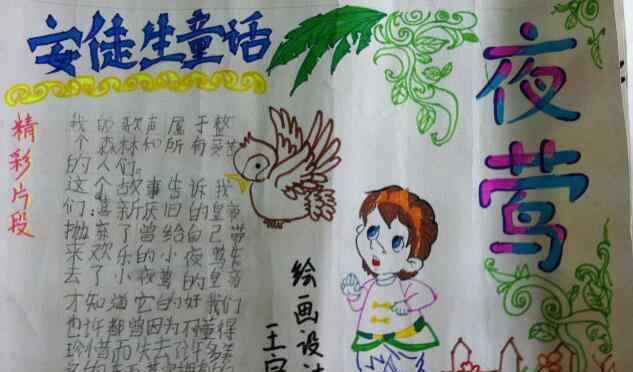 安徒生童话
夜莺
精彩片段
我的歌声属于整
个森林和所有
的人们。
这个故事告诉我
们:喜新厌旧的皇帝
抛弃了曾给自己带
来欢乐的小夜莺失
去了小夜莺的皇帝
才知道它的好我们
也许都曾因为不懂得
珍惜而失去许多美
绘画设计
王